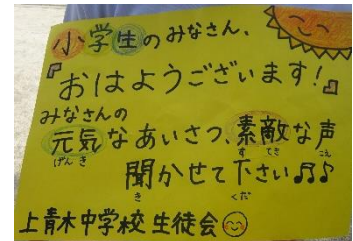 小学生のみなさん、
『おはようございます！』
みなさんの
元気なあいさつ、素敵な声
げんき すてき こえ
聞かせて下さい♫♫
き くだ
上青木中学校生徒会